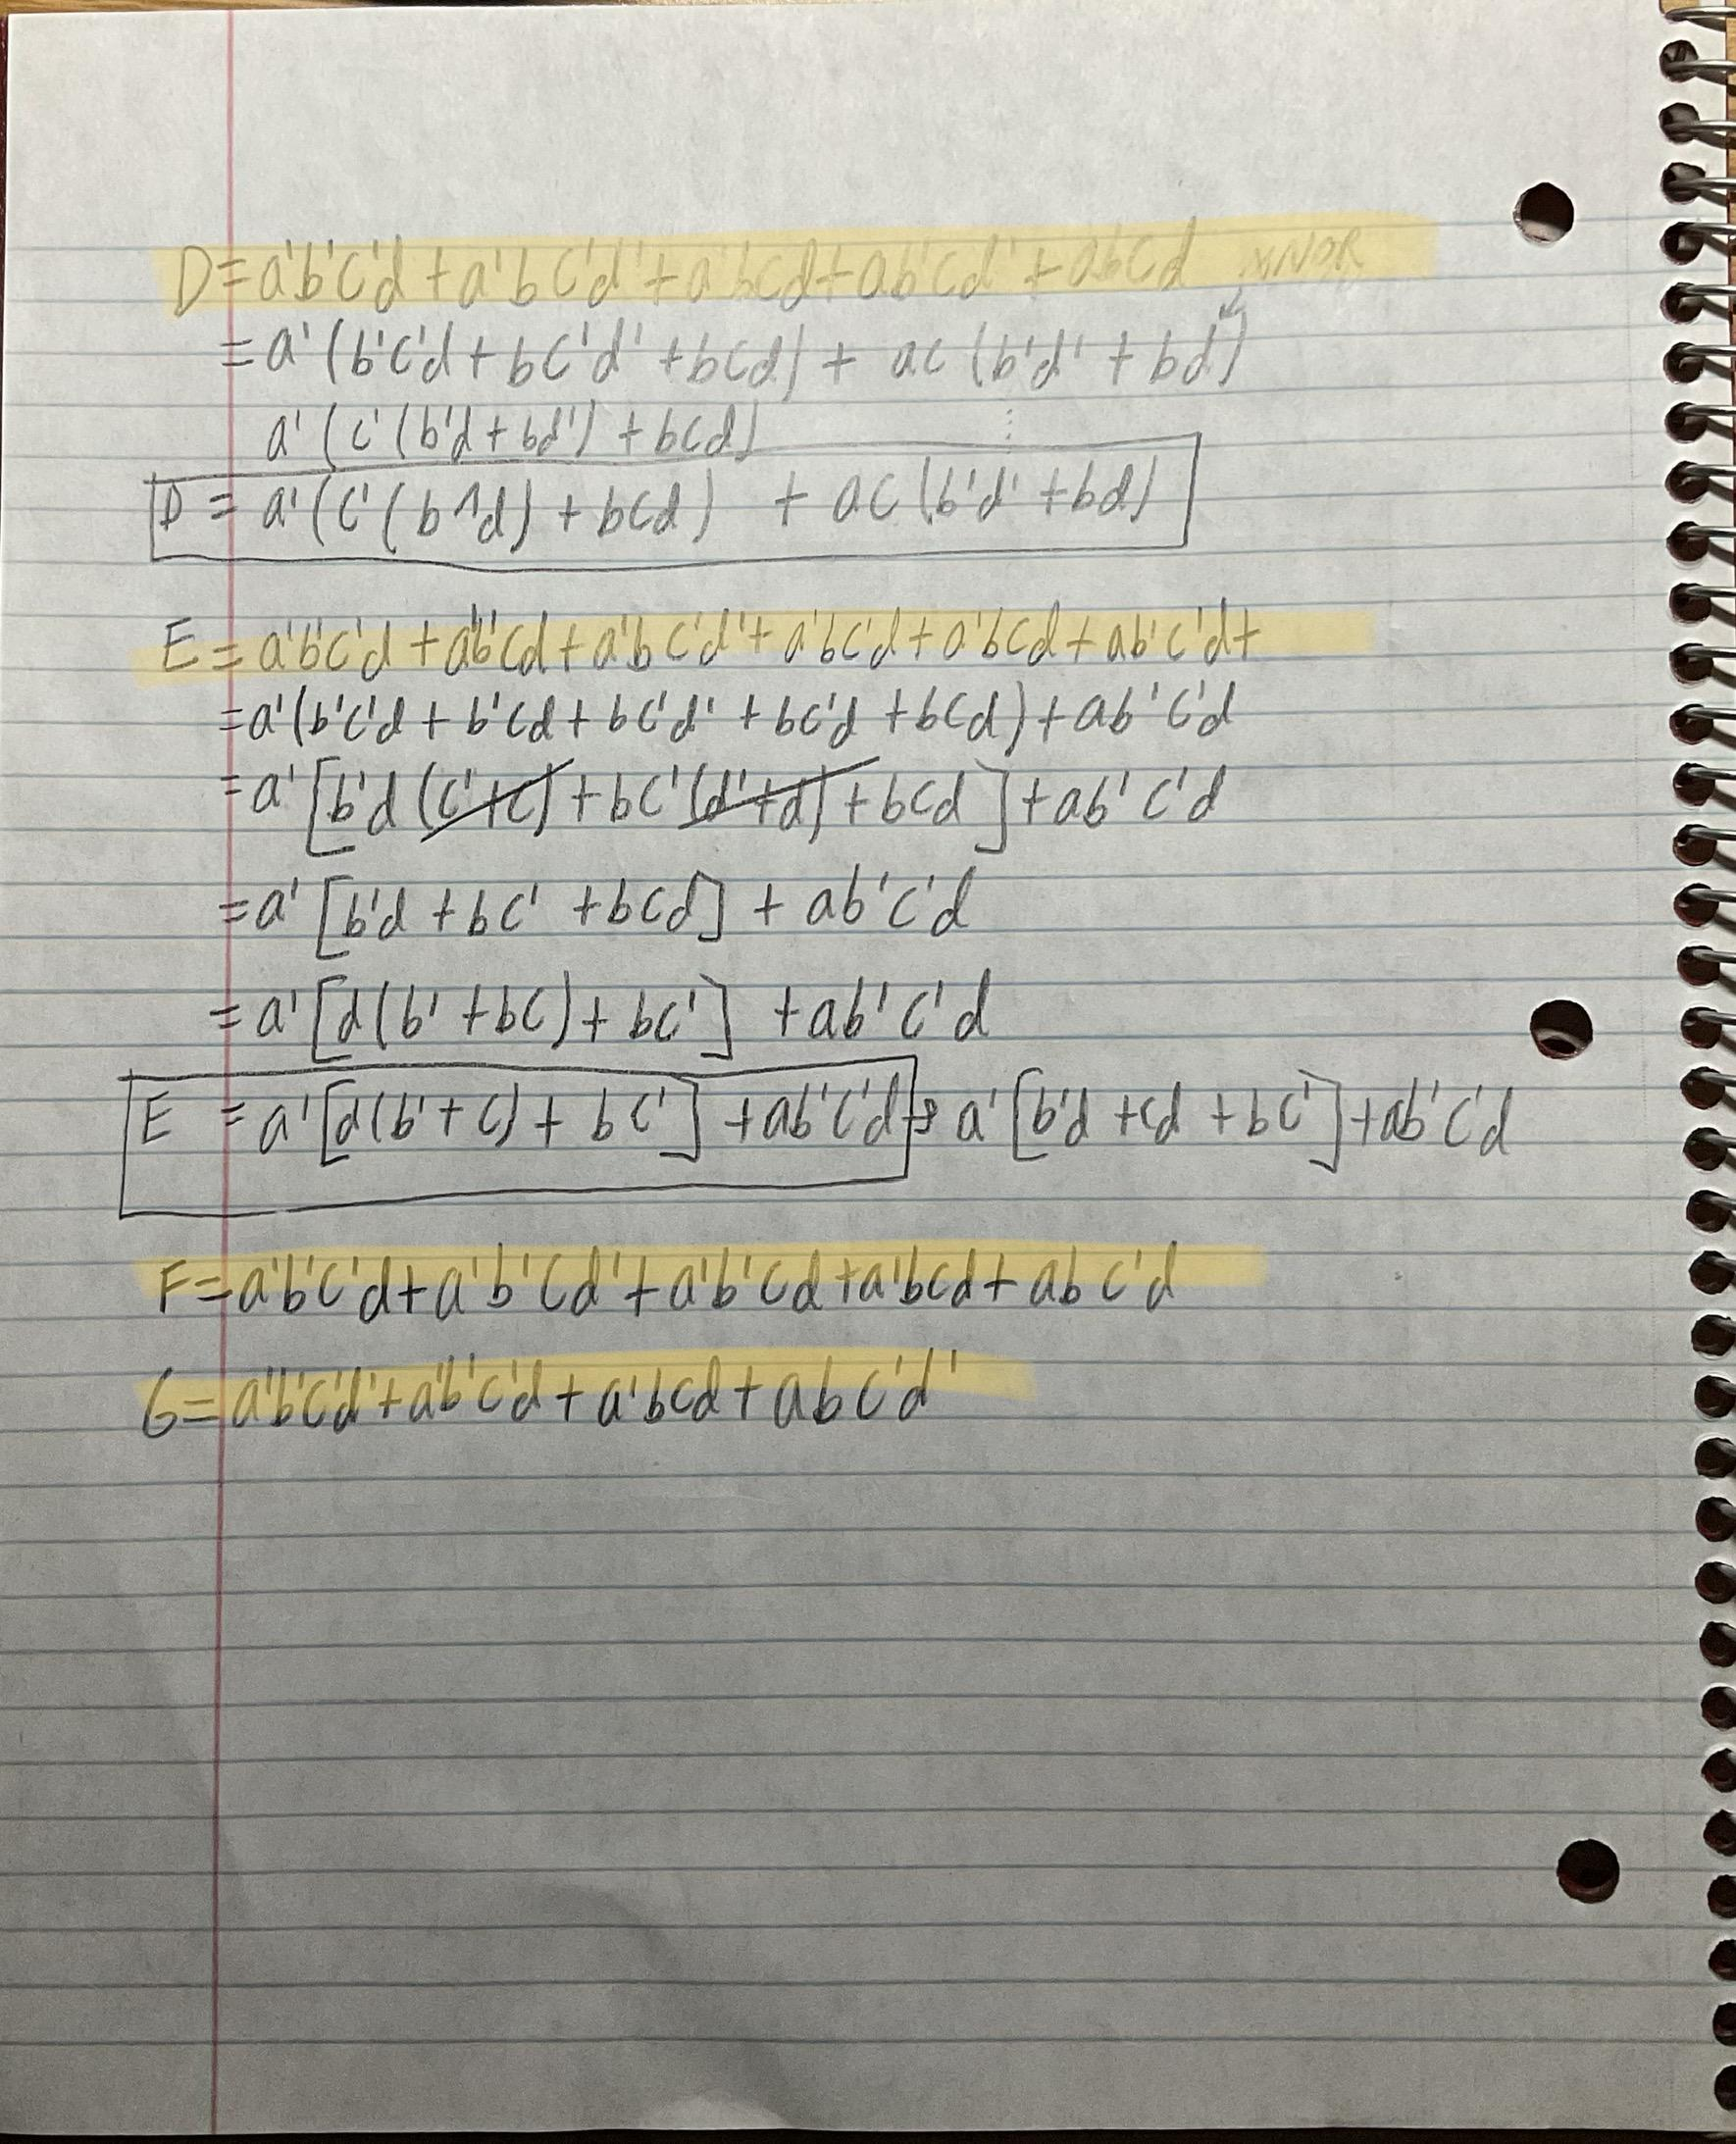 D=a'b'c'd+a'bc'd'+a'bcd+ab'cd'+abcd XNOR
=a'(b'c'd+bc'd'+bcd)+ ac(b'd'+bd)
a'(c'(b'd+bd')+bcd)
D = a'(c'(b^d)+bcd) + ac(b'd'+bd)
E=a'b'c'd+a'b'cd+a'bc'd'+a'bc'd+a'bcd+ab'c'd+
=a'(b'c'd+b'cd+bc'd'+bc'd+bcd)+ab'c'd
=a'[b'd(c'+c)+bc'(d'+d)+bcd]+ab'c'd
=a'[b'd+bc'+bcd]+ab'c'd
=a'[d(b'+bc)+bc']+ab'c'd
E =a'[d(b'+c)+bc']+ab'c'd → a'[b'd+cd+bc']+ab'c'd
F=a'b'c'd+a'b'cd'+a'b'cd+a'bcd+abc'd
G=a'b'c'd'+a'b'c'd+a'bcd+abc'd'